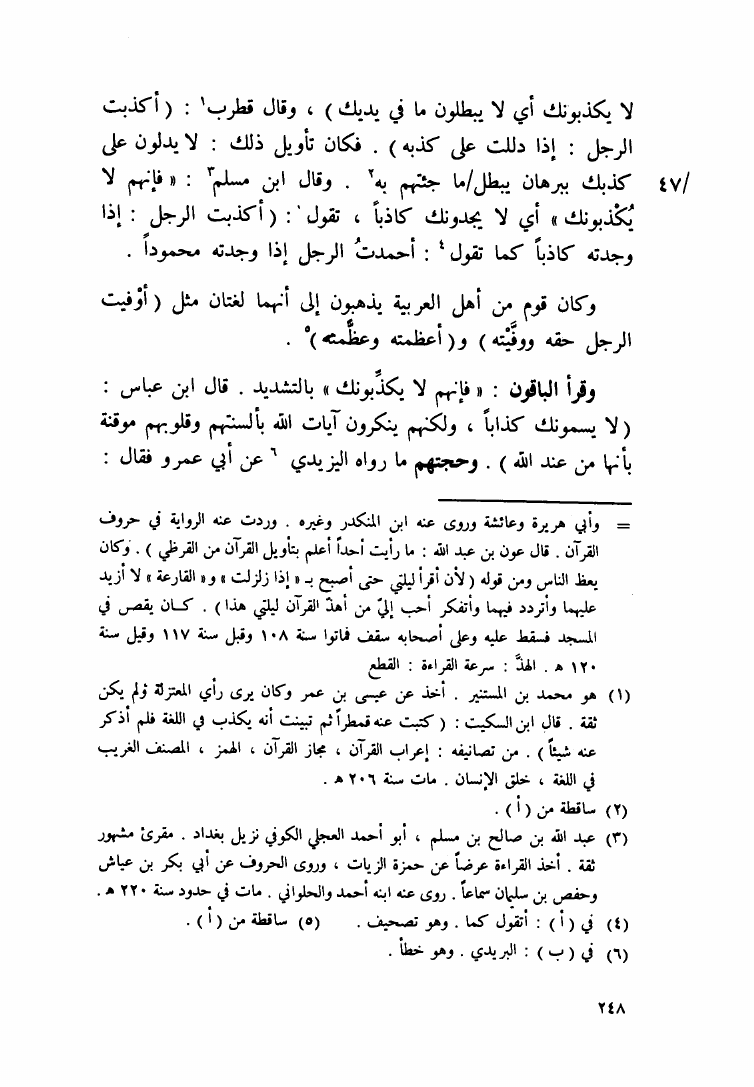 لا يكذبونك أي لا يبطلون ما في يديك ) ، وقال قطرب١ : ( أكذبت
الرجل : إذا دللت على كذبه ) . فكان تأويل ذلك : لا يدلون على
/٤٧ كذبك ببرهان يبطل/ما جئتهم به٢ . وقال ابن مسلم٣ : « فإنهم لا
يُكْذبونك » أي لا يجدونك كاذباً ، تقول : ( أكذبت الرجل : إذا
وجدته كاذباً كما تقول٤ : أحمدتُ الرجل إذا وجدته محموداً .
وكان قوم من أهل العربية يذهبون إلى أنهما لغتان مثل ( أوْفيت
الرجل حقه ووفَّيْته ) و( أعظمته وعظَّمته )٥ .
وقرأ الباقون : « فإنهم لا يكذِّبونك » بالتشديد . قال ابن عباس :
( لا يسمونك كذاباً ، ولكنهم ينكرون آيات الله بألسنتهم وقلوبهم موقنة
بأنها من عند الله ) . وحجتهم ما رواه اليزيدي ٦ عن أبي عمرو فقال :
= وأبي هريرة وعائشة وروى عنه ابن المنكدر وغيره . وردت عنه الرواية في حروف
القرآن . قال عون بن عبد الله : ما رأيت أحداً أعلم بتأويل القرآن من القرظي ) . وكان
يعظ الناس ومن قوله ( لأن أقرأ ليلتي حتى أصبح بـ « إذا زلزلت » و« القارعة » لا أزيد
عليهما وأتردد فيهما وأتفكر أحب إليّ من أهذّ القرآن ليلتي هذا ) . كـان يقصص في
المسجد فسقط عليه وعلى أصحابه سقف فماتوا سنة ١٠٨ وقيل سنة ١١٧ وقيل سنة
١٢٠ هـ . الهذَّ : سرعة القراءة : القطع
(١) هو محمد بن المستنير . أخذ عن عيسى بن عمر وكان يرى رأي المعتزلة ولم يكن
ثقة . قال ابن السكيت : ( كتبت عنه قمطراً ثم تبينت أنه يكذب في اللغة فلم أذكر
عنه شيئاً ) . من تصانيفه : إعراب القرآن ، مجاز القرآن ، الهمز ، المصنف الغريب
في اللغة ، خلق الإنسان . مات سنة ٢٠٦ هـ .
(٢) ساقطة من ( أ ) .
(٣) عبد الله بن صالح بن مسلم ، أبو أحمد العجلي الكوفي نزيل بغداد . مقرئ مشهور
ثقة . أخذ القراءة عرضاً عن حمزة الزيات ، وروى الحروف عن أبي بكر بن عياش
وحفص بن سليمان سماعاً . روى عنه ابنه أحمد والحلواني . مات في حدود سنة ٢٢٠ هـ .
(٤) في ( أ ) : أتقول كما . وهو تصحيف . (٥) ساقطة من ( أ ) .
(٦) في ( ب ) : البريدي . وهو خطأ .
٢٤٨